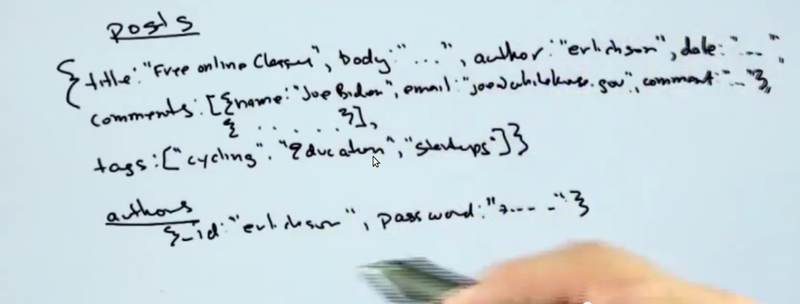 posts
{title:"Free online Classes", body:"...", author:"erlichson", date:"...",
comments:[{name:"Joe Biden", email:"joe@whitehouse.gov", comment:"..."},
{ . . . . . }],
tags:["cycling","education","startups"]}
authors
{_id:"erlichson", password:"..."}